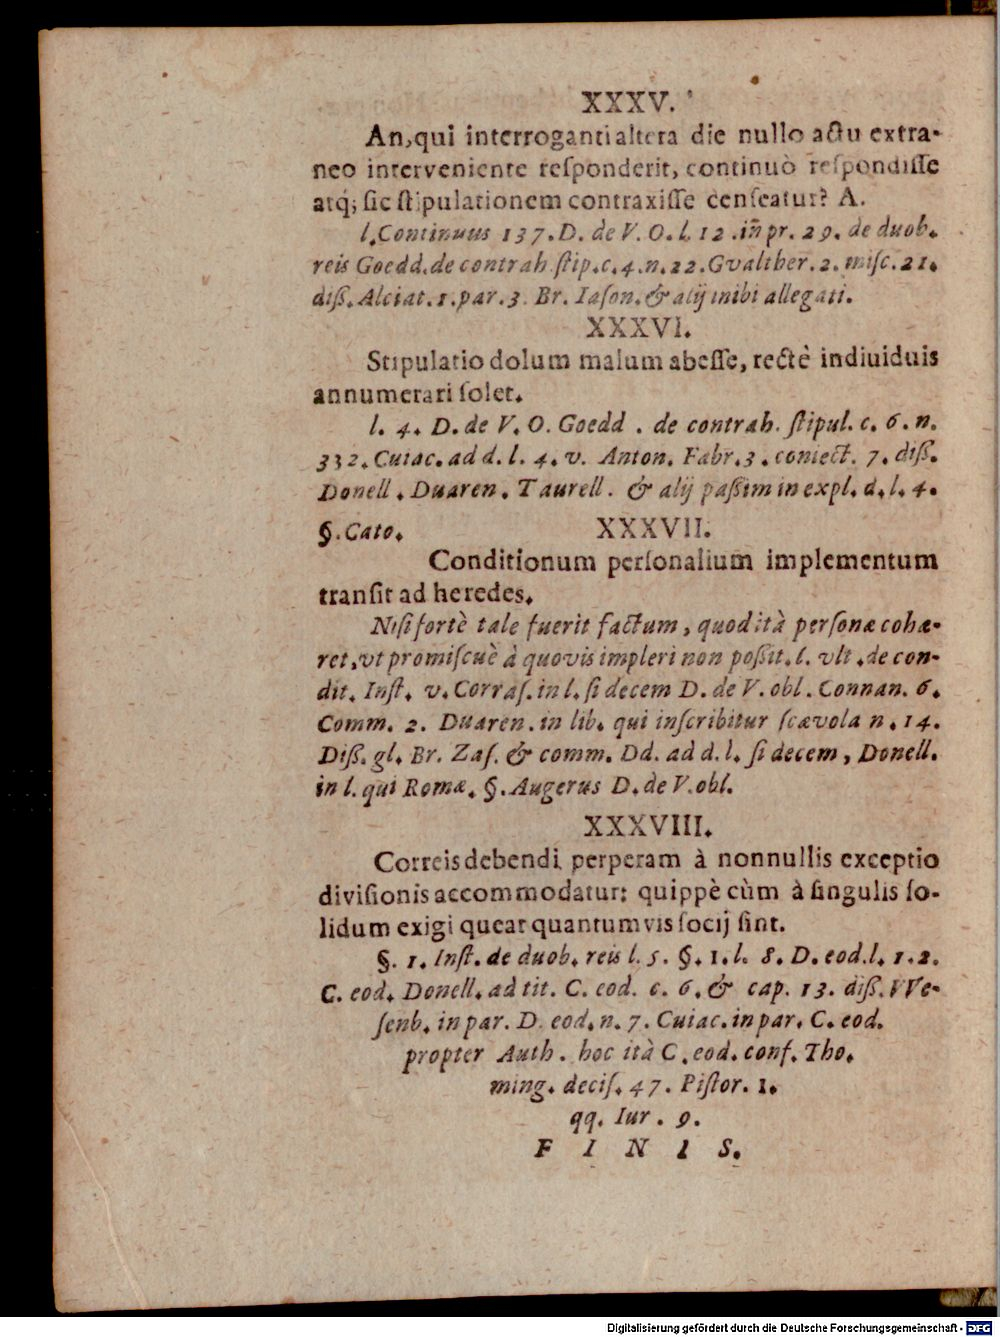 XXXV.
An, qui interroganti altera die nullo actu extra-
neo interveniente reſponderit, continuò reſpondiſſe
atq; ſic ſtipulationem contraxiſſe cenſeatur? A.
l. Continuus 137. D. de V. O. l. 12. in pr. 29. de duob.
reis Goedd. de contrah. ſtip. c. 4. n. 22. Gvalther. 2. miſc. 21.
diß. Alciat. 1. par. 3. Br. Iaſon. & alij inibi allegati.
XXXVI.
Stipulatio dolum malum abeſſe, rectè indiuiduis
annumerari ſolet.
l. 4. D. de V. O. Goedd. de contrah. ſtipul. c. 6. n.
332. Cuiac. ad d. l. 4. v. Anton. Fabr. 3. coniect. 7. diß.
Donell. Duaren. Taurell. & alij paßim in expl. d. l. 4.
§. Cato. XXXVII.
Conditionum perſonalium implementum
tranſit ad heredes.
Niſi fortè tale fuerit factum, quod ità perſonæ cohæ-
ret, vt promiſcuè à quovis impleri non poßit. l. vlt. de con-
dit. Inſt. v. Corraſ. in l. ſi decem D. de V. obl. Connan. 6.
Comm. 2. Duaren. in lib. qui inſcribitur ſcævola n. 14.
Diß. gl. Br. Zaſ. & comm. Dd. ad d. l. ſi decem, Donell.
in l. qui Romæ. §. Augerus D. de V. obl.
XXXVIII.
Correis debendi perperam à nonnullis exceptio
diviſionis accommodatur: quippè cùm à ſingulis ſo-
lidum exigi queat quantumvis ſocij ſint.
§. 1. Inſt. de duob. reis l. 5. §. 1. l. 8. D. eod. l. 1. 2.
C. eod. Donell. ad tit. C. eod. c. 6. & cap. 13. diß. VVe-
ſenb. in par. D. eod. n. 7. Cuiac. in par. C. eod.
propter Auth. hoc ità C. eod. conf. Tho.
ming. deciſ. 47. Piſtor. 1.
qq. Iur. 9.
F I N I S.
Digitalisierung gefördert durch die Deutsche Forschungsgemeinschaft - DFG